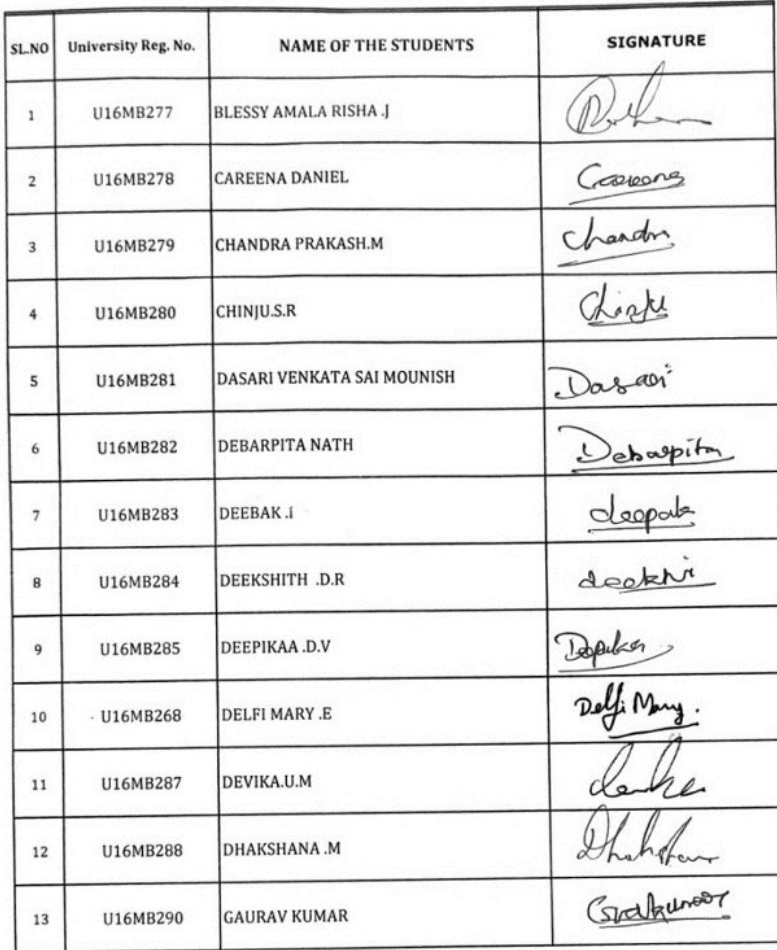 SL.NO University Reg. No. NAME OF THE STUDENTS SIGNATURE
1 U16MB277 BLESSY AMALA RISHA .J
2 U16MB278 CAREENA DANIEL Careena
3 U16MB279 CHANDRA PRAKASH.M Chandra
4 U16MB280 CHINJU.S.R Chinju
5 U16MB281 DASARI VENKATA SAI MOUNISH Dasari
6 U16MB282 DEBARPITA NATH Debarpita
7 U16MB283 DEEBAK .i deepak
8 U16MB284 DEEKSHITH .D.R
9 U16MB285 DEEPIKAA .D.V
10 U16MB268 DELFI MARY .E Delfi Mary .
11 U16MB287 DEVIKA.U.M
12 U16MB288 DHAKSHANA .M
13 U16MB290 GAURAV KUMAR